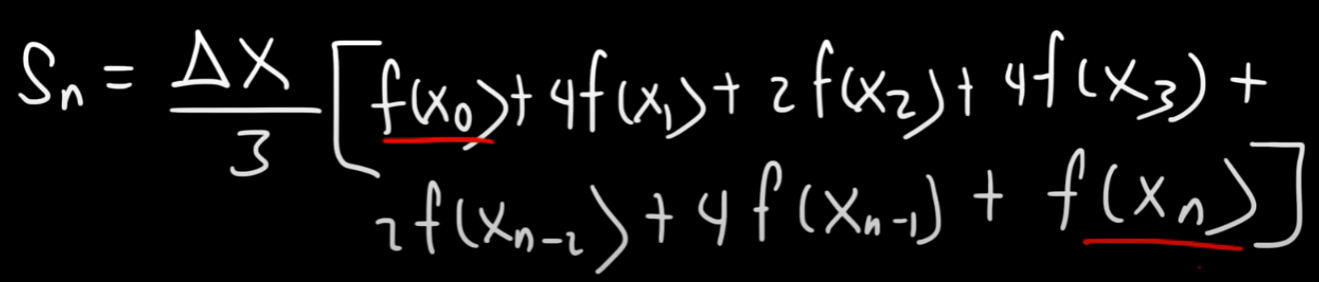 Sn = Δx/3 [f(x₀) + 4f(x₁) + 2f(x₂) + 4f(x₃) +
2f(xₙ₋₂) + 4f(xₙ₋₁) + f(xₙ)]